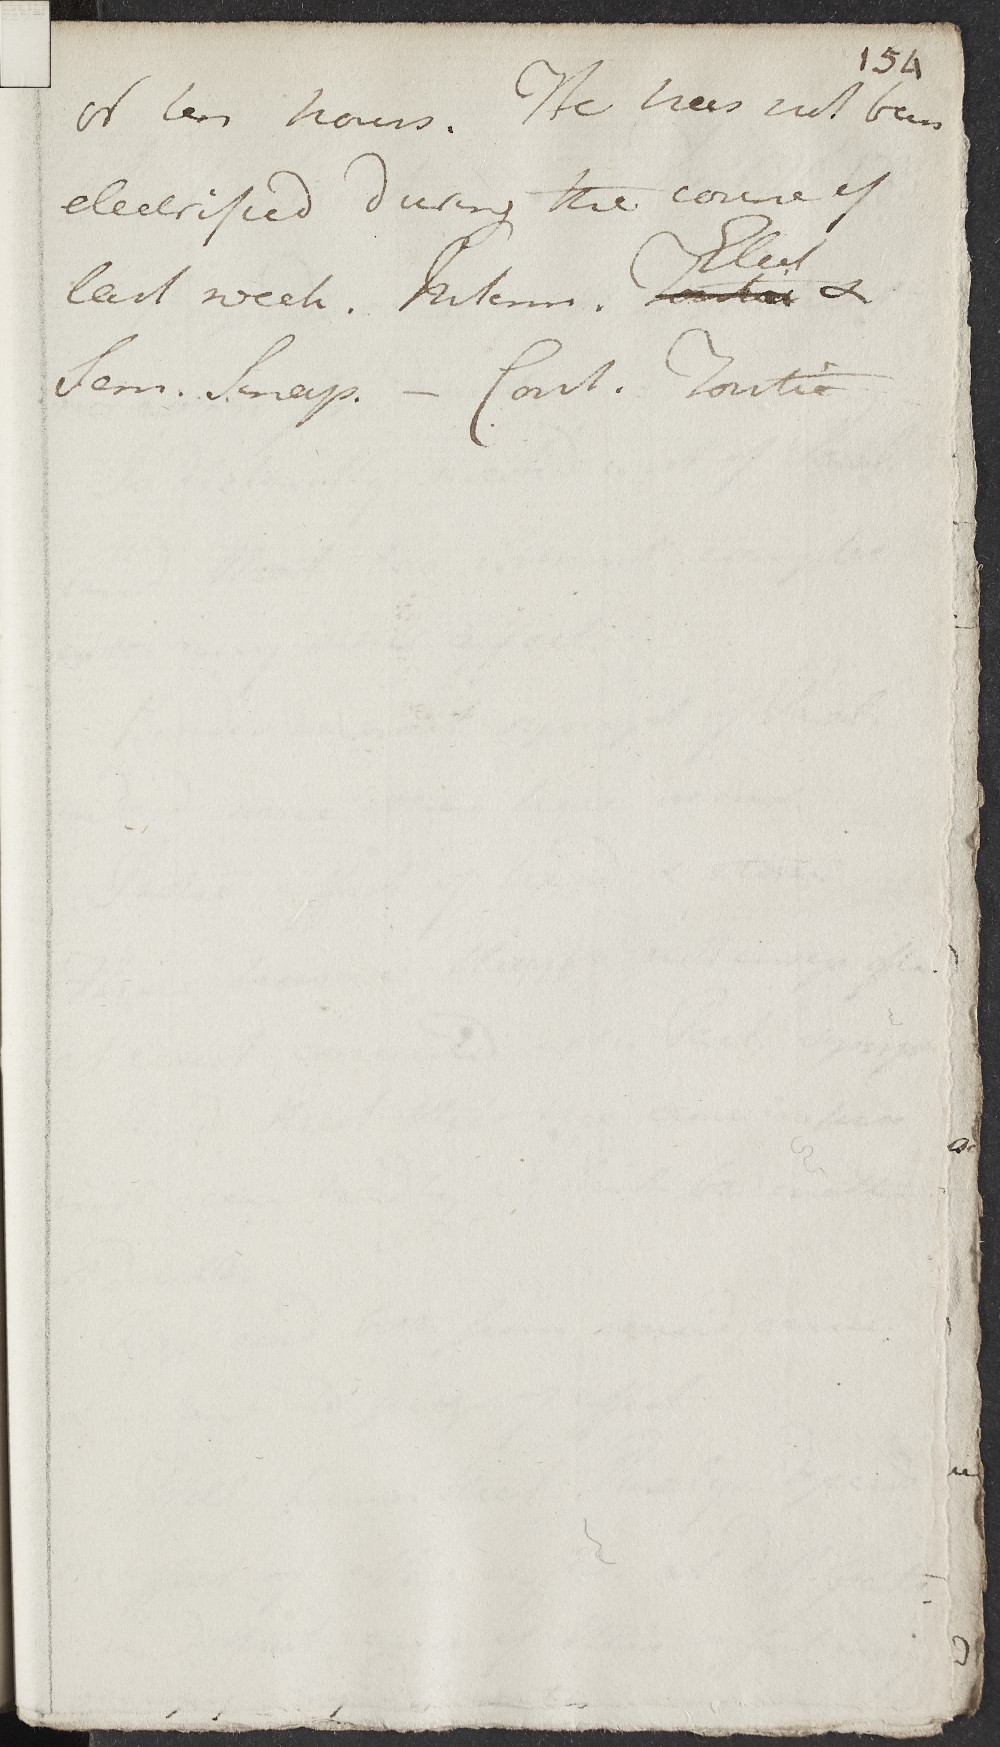 154
or ten hours. He has not been
electrified during the course of
last week. Interm. Elect
Tontin &
Sem. Sinap. — Cont. Tontin